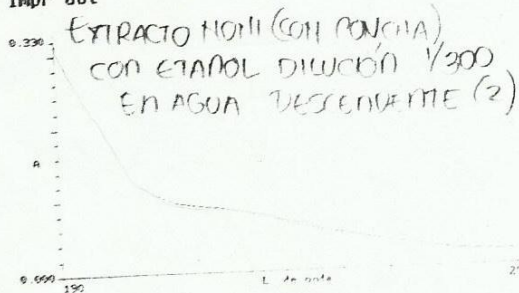 Impr aut
0.330
EXTRACTO NONI (CON PONCHA)
CON ETANOL DILUCIÓN 1/300
EN AGUA DESCENDENTE (2)
A
0.000
190
L de onda